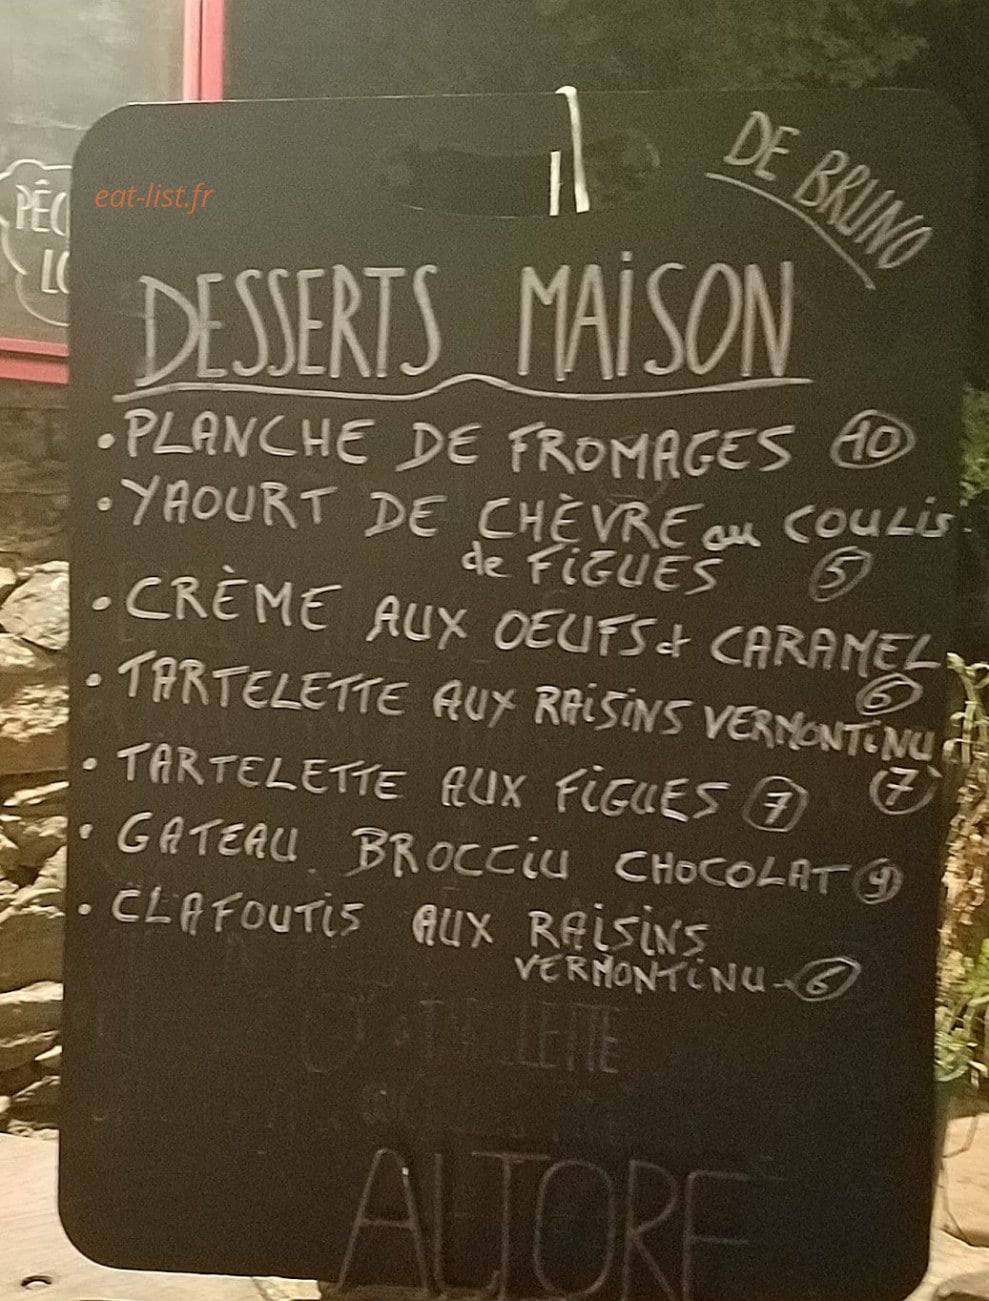 DE BRUNO
eat-list.fr
PÊC
LO
DESSERTS MAiSON
• PLANCHE DE FROMAGES 10
• YAOURT DE CHÈVRE au COULiS
de FiGUES 5
• CRÈME AUX OEUFS & CARAMEL
6
• TARTELETTE AUX RAiSiNS VERMONTiNU
7
• TARTELETTE AUX FiGUES 7
• GATEAU BROCCiU CHOCOLAT 9
• CLAFOUTiS AUX RAiSiNS
VERMONTiNU - 6
ALTORE